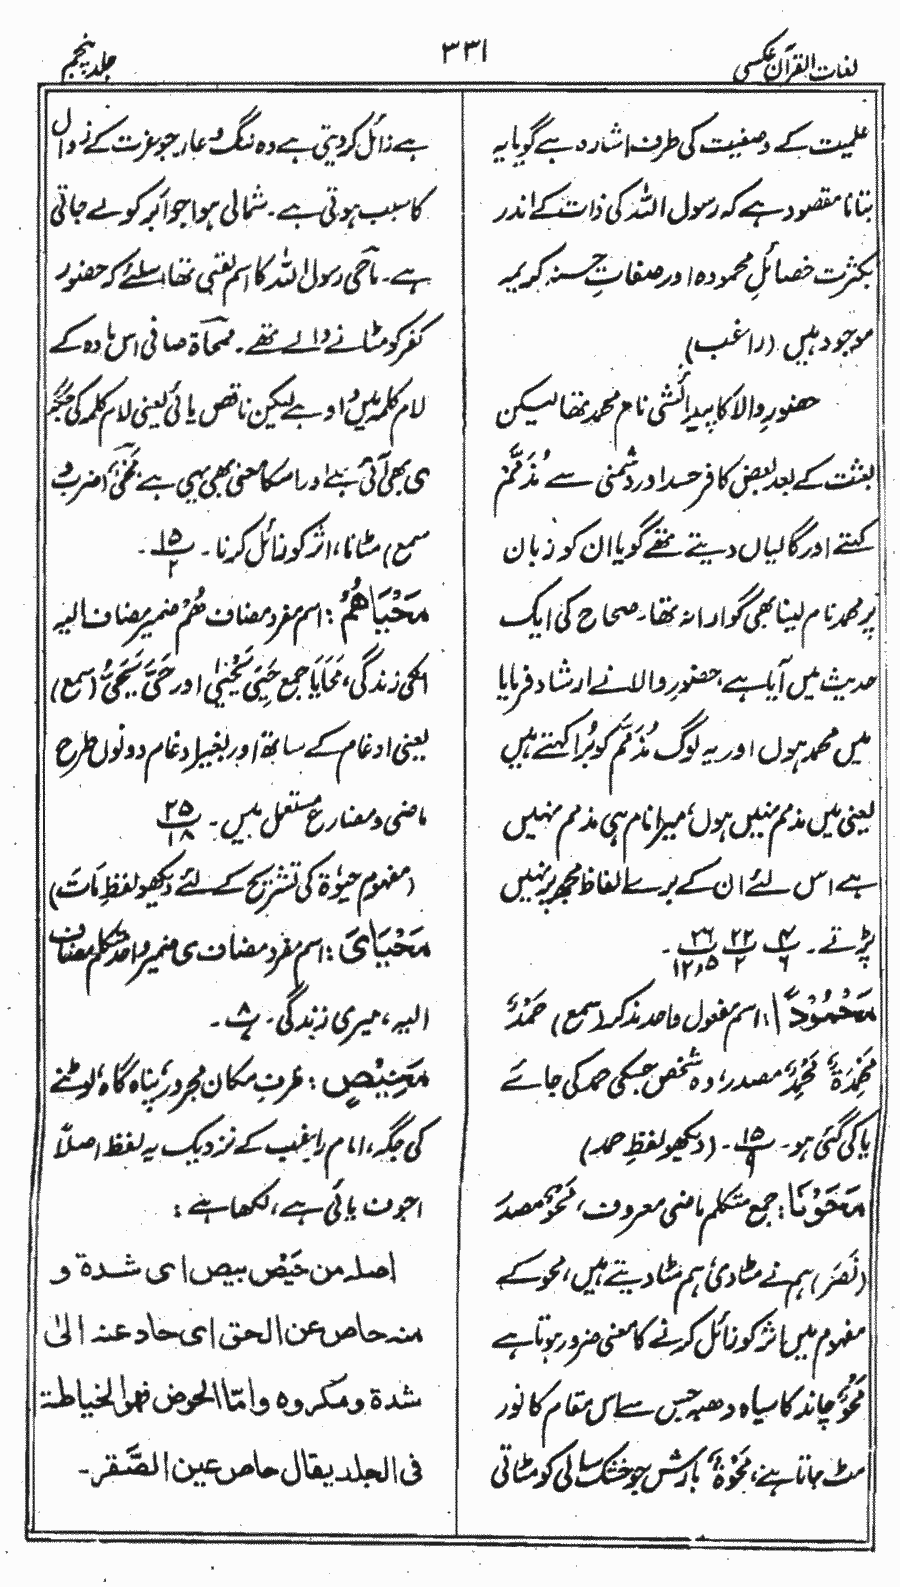 لغات القرآن عکسی
۳۳۱
جلد پنجم
علمیت کے وصفیت کی طرف اشارہ ہے گویا یہ
بتانا مقصود ہے کہ رسول اللہ کی ذات کے اندر
بکثرت خصائلِ محمودہ اور صفاتِ حسنہ کریمہ
موجود ہیں (راغب)
حضورِ والا کا پیدائشی نام محمد تھا لیکن
بعثت کے بعد بعض کافر حسد اور دشمنی سے مُذَمَّم
کہتے اور گالیاں دیتے تھے گویا ان کو زبان
پر محمد نام لینا بھی گوارا نہ تھا۔ صحاح کی ایک
حدیث میں آیا ہے، حضورِ والا نے ارشاد فرمایا
میں محمد ہوں اور یہ لوگ مُذَمَّم کو بُرا کہتے ہیں
یعنی میں مذمم نہیں ہوں، میرا نام ہی مذمم نہیں
ہے اس لئے ان کے برے الفاظ مجھ پر نہیں
پڑتے۔ ۴/۶ ۲۲/۲ ۲۶/۱۲،۵ ۔
مَحْمُوْدًا: اسم مفعول واحد مذکر (سمع) حَمْدٌ
مَحْمِدَةٌ مَحْمِدٌ مصدر، وہ شخص جسکی حمد کی جائے
یا کی گئی ہو۔ ۱۵/۹ ۔ (دیکھو لفظِ حمد)
مَحَوْنَا: جمع متکلم ماضی معروف، مَحْوٌ مصدر
(نَصَرَ) ہم نے مٹا دی ہم مٹا دیتے ہیں، محو کے
مفہوم میں اثر کو زائل کرنے کا معنی ضرور ہوتا ہے
مَحْوٌ چاند کا سیاہ دھبہ جس سے اس مقام کا نور
مٹ جاتا ہے، مَحْوَةٌ بارش جو خشک سالی کو مٹاتی
ہے زائل کر دیتی ہے وہ ننگ و عار جو عزت کے زوال
کا سبب ہوتی ہے۔ شمالی ہوا جو ابر کو لے جاتی
ہے۔ ماحی رسول اللہ کا اسم لقبی تھا اسلئے کہ حضور
کفر کو مٹانے والے تھے۔ ممحاة صافی اس مادہ کے
لام کلمہ میں واو ہے لیکن ناقص یائی یعنی لام کلمہ کی جگہ
ی بھی آئی ہے اور اسکا معنی بھی یہی ہے مَحْیٌ (ضرب و
سمع) مٹانا، اثر کو زائل کرنا۔ ۱۵/۲ ۔
مَحْيَاهُمْ: اسم مفرد مضاف هُمْ ضمیر مضاف الیہ
انکی زندگی، مَحَایَا جمع حَيِيَ يَحْيٰی اور حَيَّ يَحَيُّ (سمع)
یعنی ادغام کے ساتھ اور بغیر ادغام دونوں طرح
ماضی و مضارع مستعمل ہیں۔ ۲۵/۱۸
(مفہوم حیوٰة کی تشریح کے لئے دیکھو لفظِ مَاتَ)
مَحْيَايَ: اسم مفرد مضاف ی ضمیر واحد متکلم مضاف
الیہ، میری زندگی۔ ۸/ ۔
مَحِيْصٍ: ظرف مکان مجرور، پناہ گاہ، لوٹنے
کی جگہ، امام راغب کے نزدیک یہ لفظ اصلاً
اجوف یائی ہے، لکھا ہے:
اصلہ من حَیْصَ بیص ای شدة و
منہ حاص عن الحق ای حاد عنہ الیٰ
شدة و مکروہ و امّا الحوص فھو الخیاطة
فی الجلد یقال حاص عین الصَّقر۔